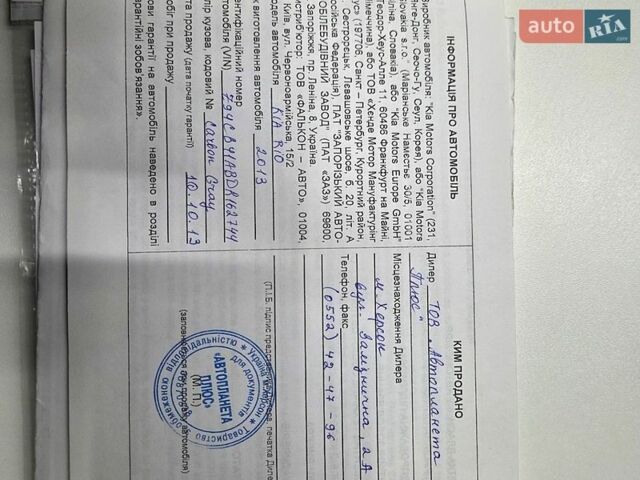 AUTO RIA .com
ІНФОРМАЦІЯ ПРО АВТОМОБІЛЬ
иробник автомобіля: "Kia Motors Corporation" (231,
нге-Донг, Сеочо-Гу, Сеул, Корея), або "Kia Motors
lovakia s.r.o." (Маріанське Наместье 30/5, 01001
іліна, Словакія), або "Kia Motors Europe GmbH"
Теодор-Хеус-Алле 11, 60486 Франкфурт на Майні,
імеччина), або ТОВ «Хенде Мотор Мануфактуринг
ус» (197706, Санкт – Петербург, Курортний район,
Сестрорецьк, Левашовське шосе, б. 20, літ. А
осійська Федерація) ПАТ "ЗАПОРІЗЬКИЙ АВТО-
ОБІЛЕБУДІВНИЙ ЗАВОД" (ПАТ «ЗАЗ») 69600,
Запоріжжя, пр. Леніна, 8, Україна.
истриб'ютор: ТОВ «ФАЛЬКОН – АВТО», 01004,
Київ, вул. Червоноармійська, 15/2
одель автомобіля KIA RIO
к виготовлення автомобіля 2013
ентифікаційний номер
томобіля (VIN)
лір кузова, кодовий № Carbon Gray
та продажу (дата початку гарантії) 10.10.13
обіг при продажу
ови гарантії на автомобіль наведено в розділі
арантійні зобов'язання».
КИМ ПРОДАНО
Дилер ТОВ „Автопланета
Плюс"
Місцезнаходження Дилера
м. Херсон
вул. Залізнична, 2А
Телефон, факс
(0552) 42-47-96
(П.І.Б., підпис представника Дилера, печатка Диле
(М. П.)
(заповнюється при продажу автомобіля)
Україна м.Херсон * Товариство з обмеженою відповідальністю *
для документів
«АВТОПЛАНЕТА
ПЛЮС»